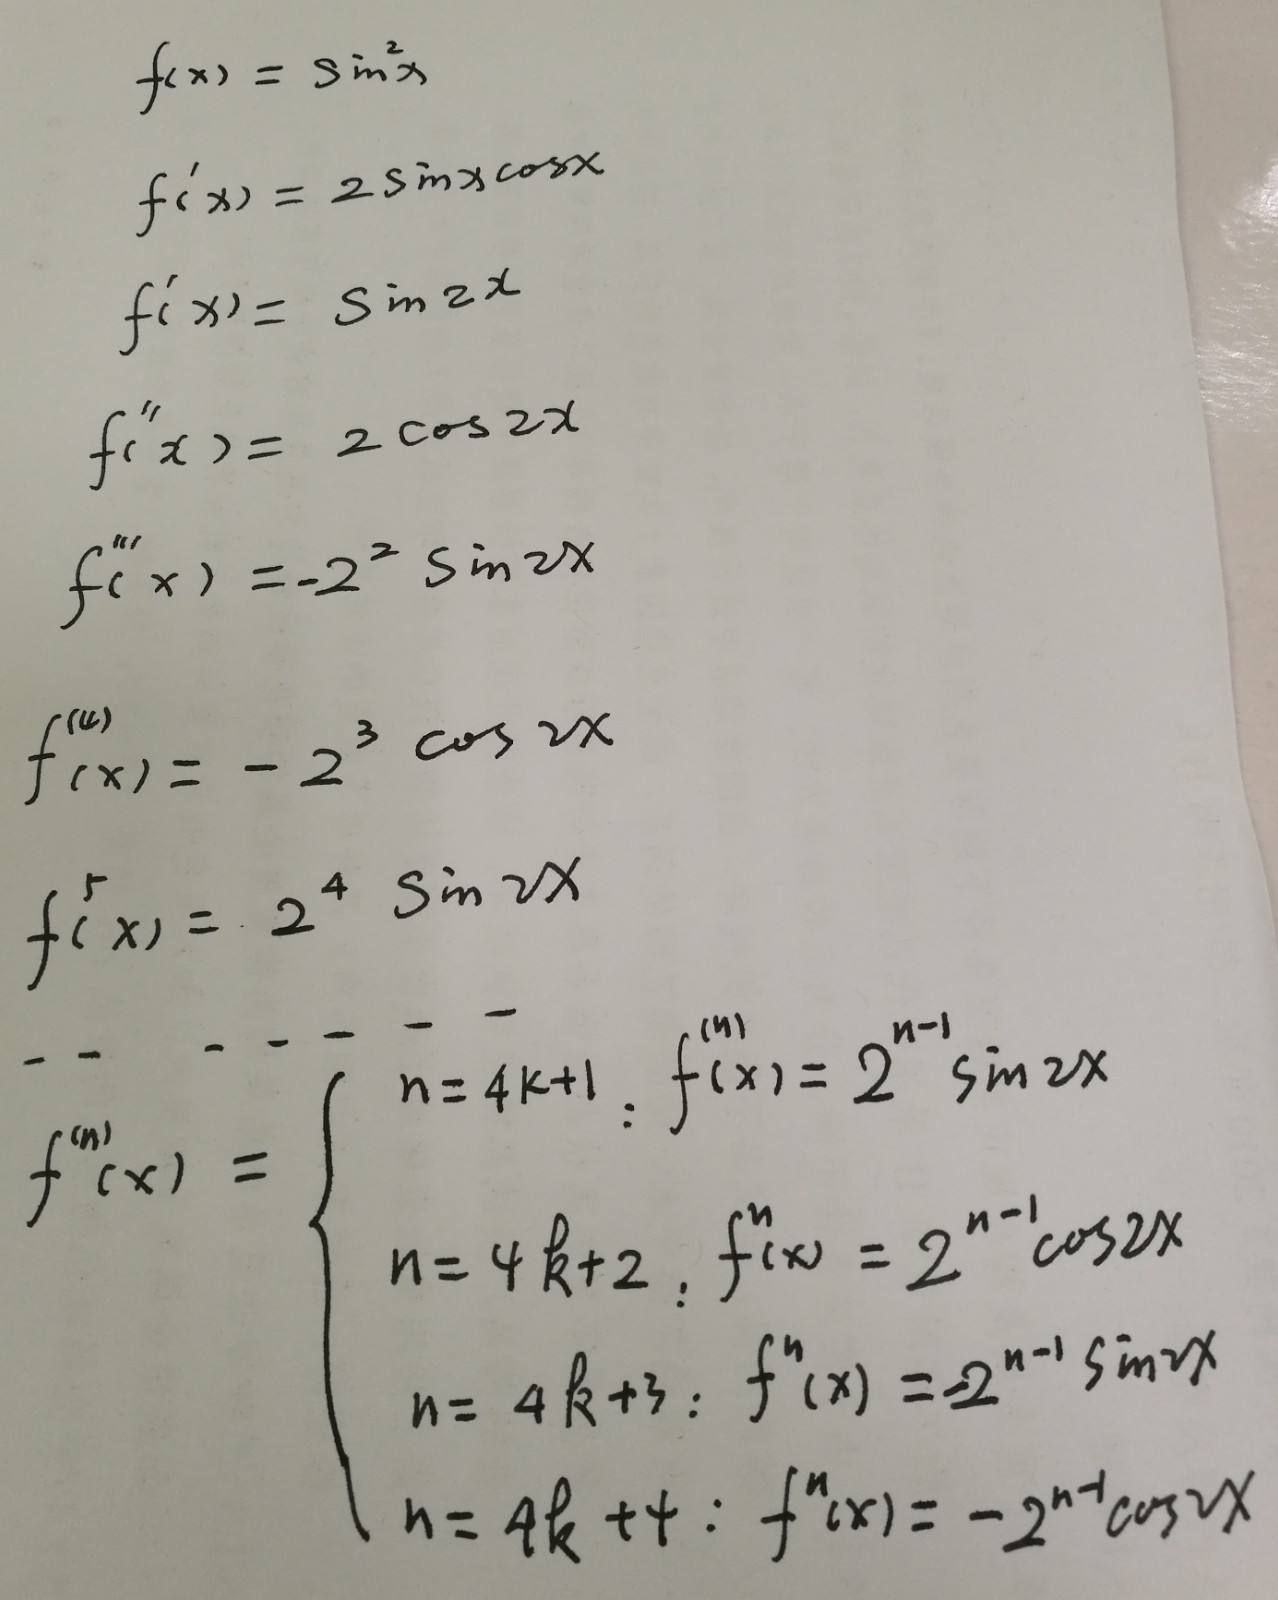 f(x) = sin²x
f'(x) = 2 sinx cosx
f'(x) = sin 2x
f''(x) = 2 cos 2x
f'''(x) = -2² sin 2x
f⁽⁴⁾(x) = - 2³ cos 2x
f⁵(x) = 2⁴ sin 2x
-- - - - - -
f⁽ⁿ⁾(x) = {
n = 4k+1 : f⁽ⁿ⁾(x) = 2ⁿ⁻¹ sin 2x
n = 4k+2 : fⁿ(x) = 2ⁿ⁻¹ cos 2x
n = 4k+3 : fⁿ(x) = -2ⁿ⁻¹ sin 2x
n = 4k+4 : fⁿ(x) = -2ⁿ⁻¹ cos 2x